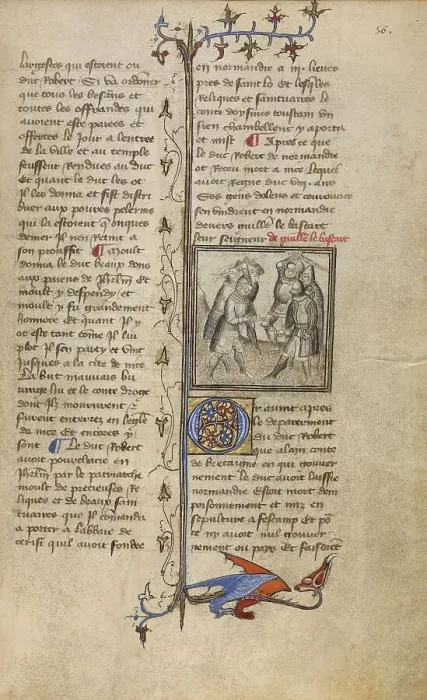 56.
largesses qui estoient ou
duc Robert Si va ordoner
que tous les besans et
toutes les offrandes qui
avoient este paiees et
offertes le jour a lentree
de la ville et au temple
feussent rendues au duc
Et quant le duc les ot
il les donna et fist distri
buer aux povres pelerins
qui la estoient quonques
denier il nen retint a
son prouffit ¶ Moult
donna le duc beaux dons
aux paiens de Jhrlm et
moult y despendy et
moult y fu grandement
honnore Et quant il y
ot este tant come il lui
plot il sen party et vint
jusques a la cite de nice
La but mauvais bu
vrage lui et le conte droge
dont ilz moururent Et
furent enterrez en leglise
de nice Et encores y
sont ¶ Le duc Robert
avoit pourchacie en
Jhrlm par le patriarche
moult de precieuses Re
liques et de beaux sain
tuaires que il comanda
a porter a labbaie de
cerisi quil avoit fondee
en normandie a iij. lieues
pres de saint lo Et lesqles
Reliques et saintuaires le
conte doysmes toustain un
sien chambellent y aporta
et mist ¶ Apres ce que
le duc Robert de normandie
ot Receu mort a nice lequel
avoit regne duc viij. ans
Ses gens dolens et courouciez
sen vindrent en normandie
devers guille le bastart
leur seigneur de guille le bastart
Or avint apres
le partement
du duc Robert
que alain conte
de bretaigne en qui gouver
nement le duc avoit laissie
normandie estoit mort dem
poisonnement et mis en
sepulture a fescamp Et po
ce ny avoit nul gouver
nement ou pays Et faisoient